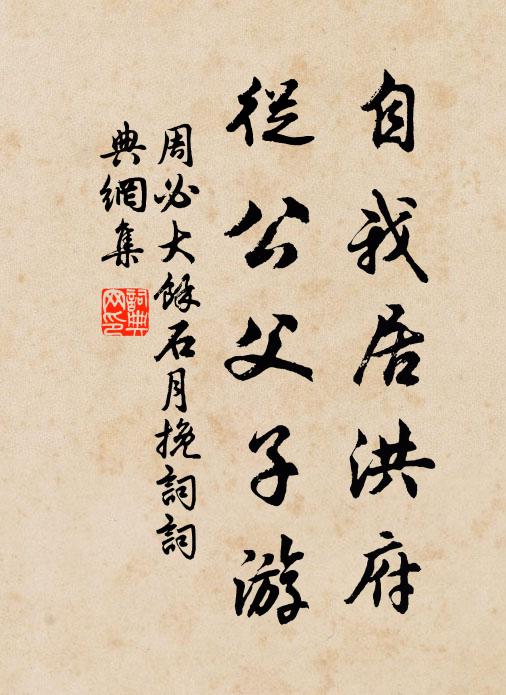 自我居洪府
從公父子游
周必大餘石月挽詞詞
典網集
詞典
网印